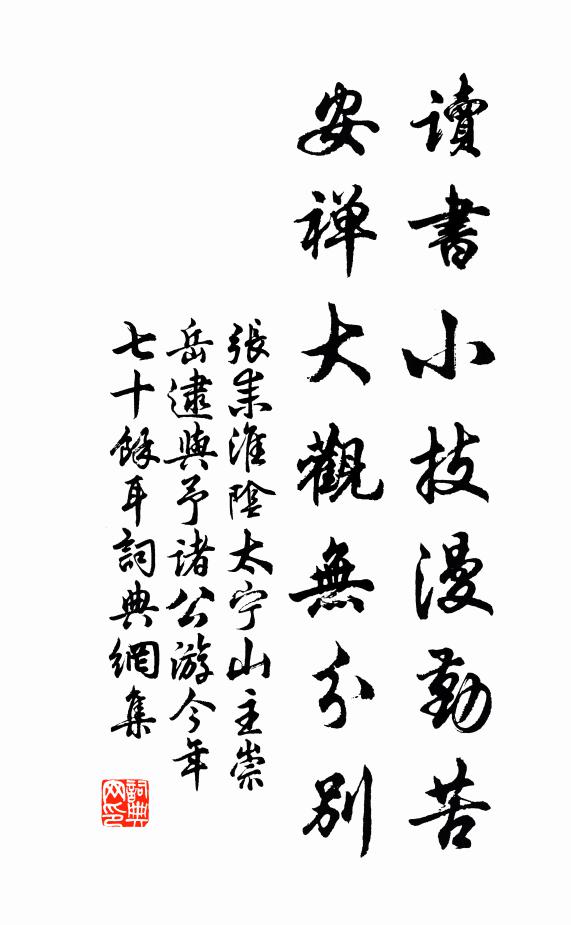 讀書小技漫勤苦
安禅大觀無分別
張耒淮陰太宁山主崇
岳逮與予諸公游今年
七十餘耳詞典網集
詞典
网印